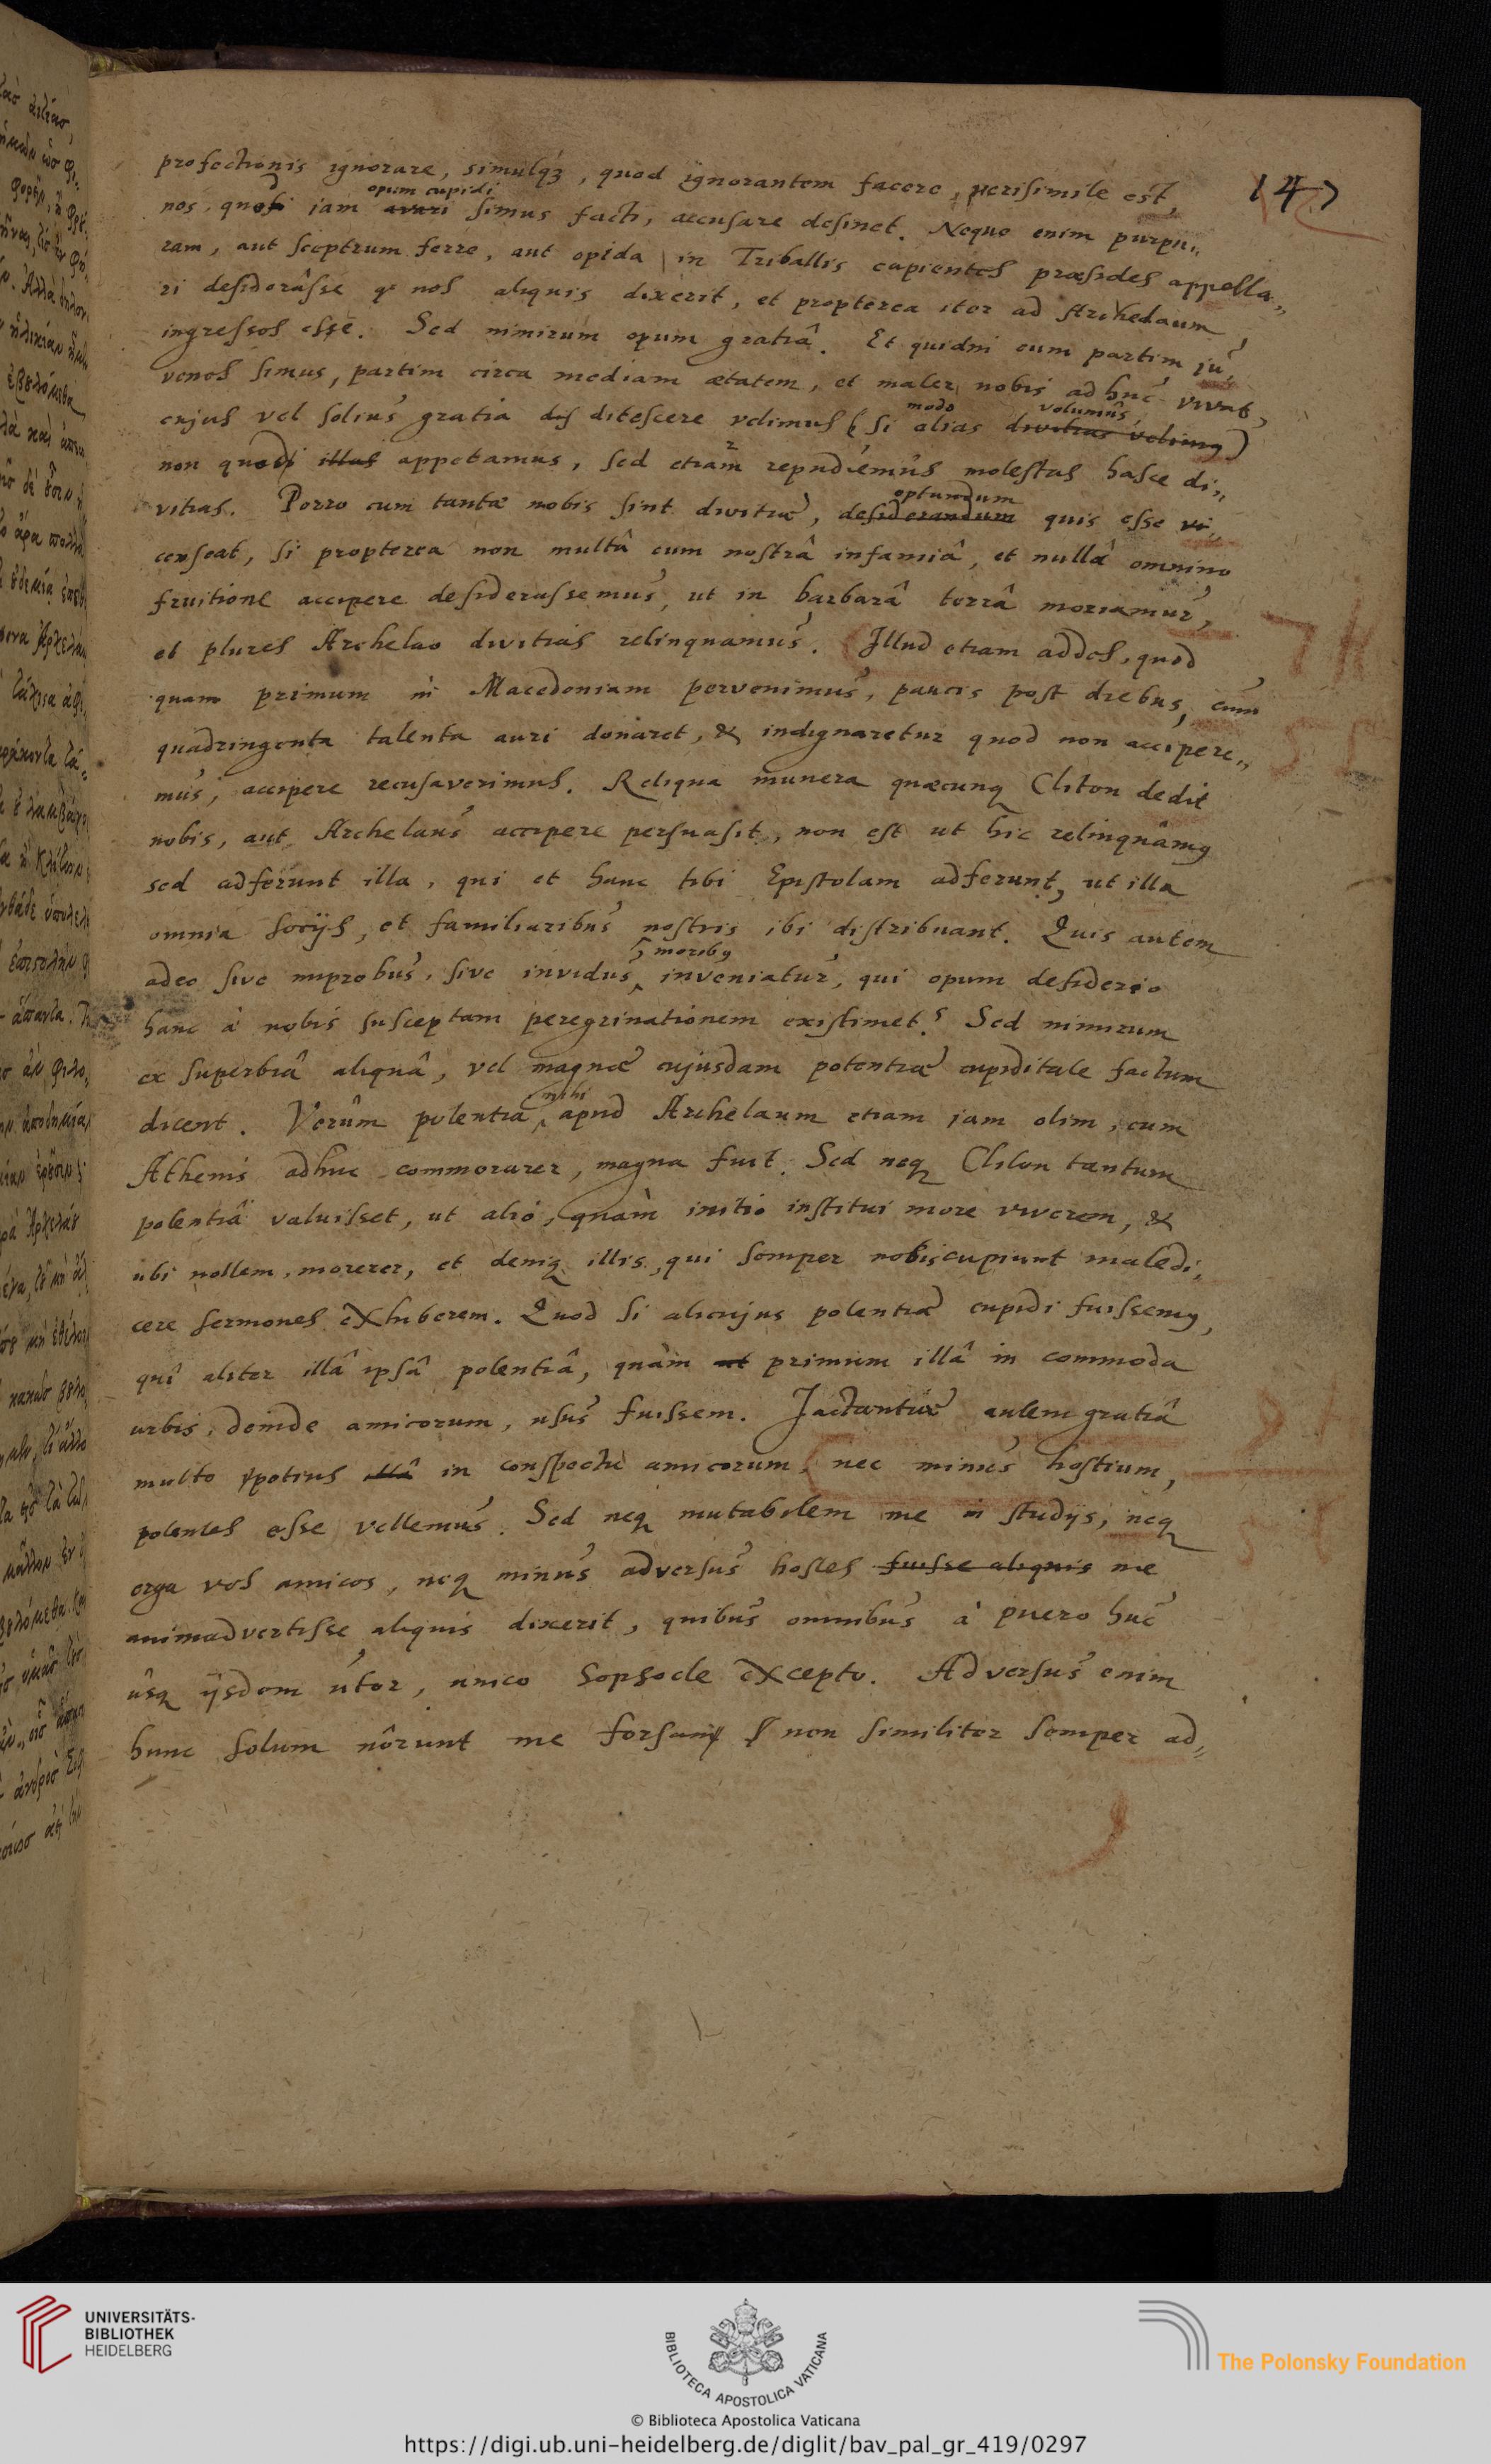 147
profectionis ignorare, simulq3, quod ignorantem facere, verisimile est,
nos, quod jam opum cupidi simus facti, accusare desinet. Neque enim purpu„
ram, aut sceptrum ferre, aut opida in Triballis capientes præsides appella„
ri desiderâsse nos aliquis dixerit, et propterea iter ad Archelaum
ingressos esse. Sed nimirum opum gratiâ. Et quidni cum partim ju„
venes simus, partim circa mediam ætatem, et mater nobis adhuc vivat,
cujus vel solius gratia ditescere velimus (si modo alias volumus)
non quod appetamus, sed etiam repudiemus molestas hasce di„
vitias. Porro cum tantæ nobis sint divitiæ, optandum quis esse
censeat, si propterea non multâ cum nostrâ infamiâ, et nullâ omnino
fruitione accipere desiderassemus, ut in barbarâ terrâ moriamur,
et plures Archelao divitias relinquamus. Illud etiam addes, quod
quam primum in Macedoniam pervenimus, paucis post diebus, cum
quadringenta talenta auri donaret, & indignaretur quod non accipere„
mus, accipere recusaverimus. Reliqua munera quæcunq Cliton dedit
nobis, aut Archelaus accipere persuasit, non est ut hic relinquâmus
sed adferunt illa, qui et hanc tibi Epistolam adferunt, ut illa
omnia socijs, et familiaribus nostris ibi distribuant. Quis autem
adeo sive improbus, sive invidus moribus inveniatur, qui opum desiderio
hanc à nobis susceptam peregrinationem existimet? Sed nimirum
ex superbiâ aliquâ, vel magnæ cujusdam potentiæ cupiditate factum
dicent. Verùm potentia mihi apud Archelaum etiam jam olim, cum
Athenis adhuc commorarer, magna fuit. Sed neq Cliton tantum
potentiâ valuisset, ut alio, quàm initio institui more viverem, &
ubi nollem, morerer, et deniq illis, qui semper nobis cupiunt maledi„
cere sermones exhiberem. Quod si alicujus potentiæ cupidi fuissemus,
quî aliter illâ ipsâ potentiâ, quàm primum illâ in commoda
urbis, deinde amicorum, usus fuissem. Jactantiæ autem gratiâ
multo potius in conspectu amicorum, nec minus hostium,
potentes esse vellemus. Sed neq mutabilem me in studijs, neq
erga vos amicos, neq minus adversus hostes fuisse aliquis me
animadvertisse aliquis dixerit, quibus omnibus à puero huc
usq ijsdem utor, unico Sophocle excepto. Adversus enim
hunc solum nôrunt me forsan non similiter semper ad„
UNIVERSITÄTS-
BIBLIOTHEK
HEIDELBERG
BIBLIOTECA APOSTOLICA VATICANA
The Polonsky Foundation
© Biblioteca Apostolica Vaticana
https://digi.ub.uni-heidelberg.de/diglit/bav_pal_gr_419/0297